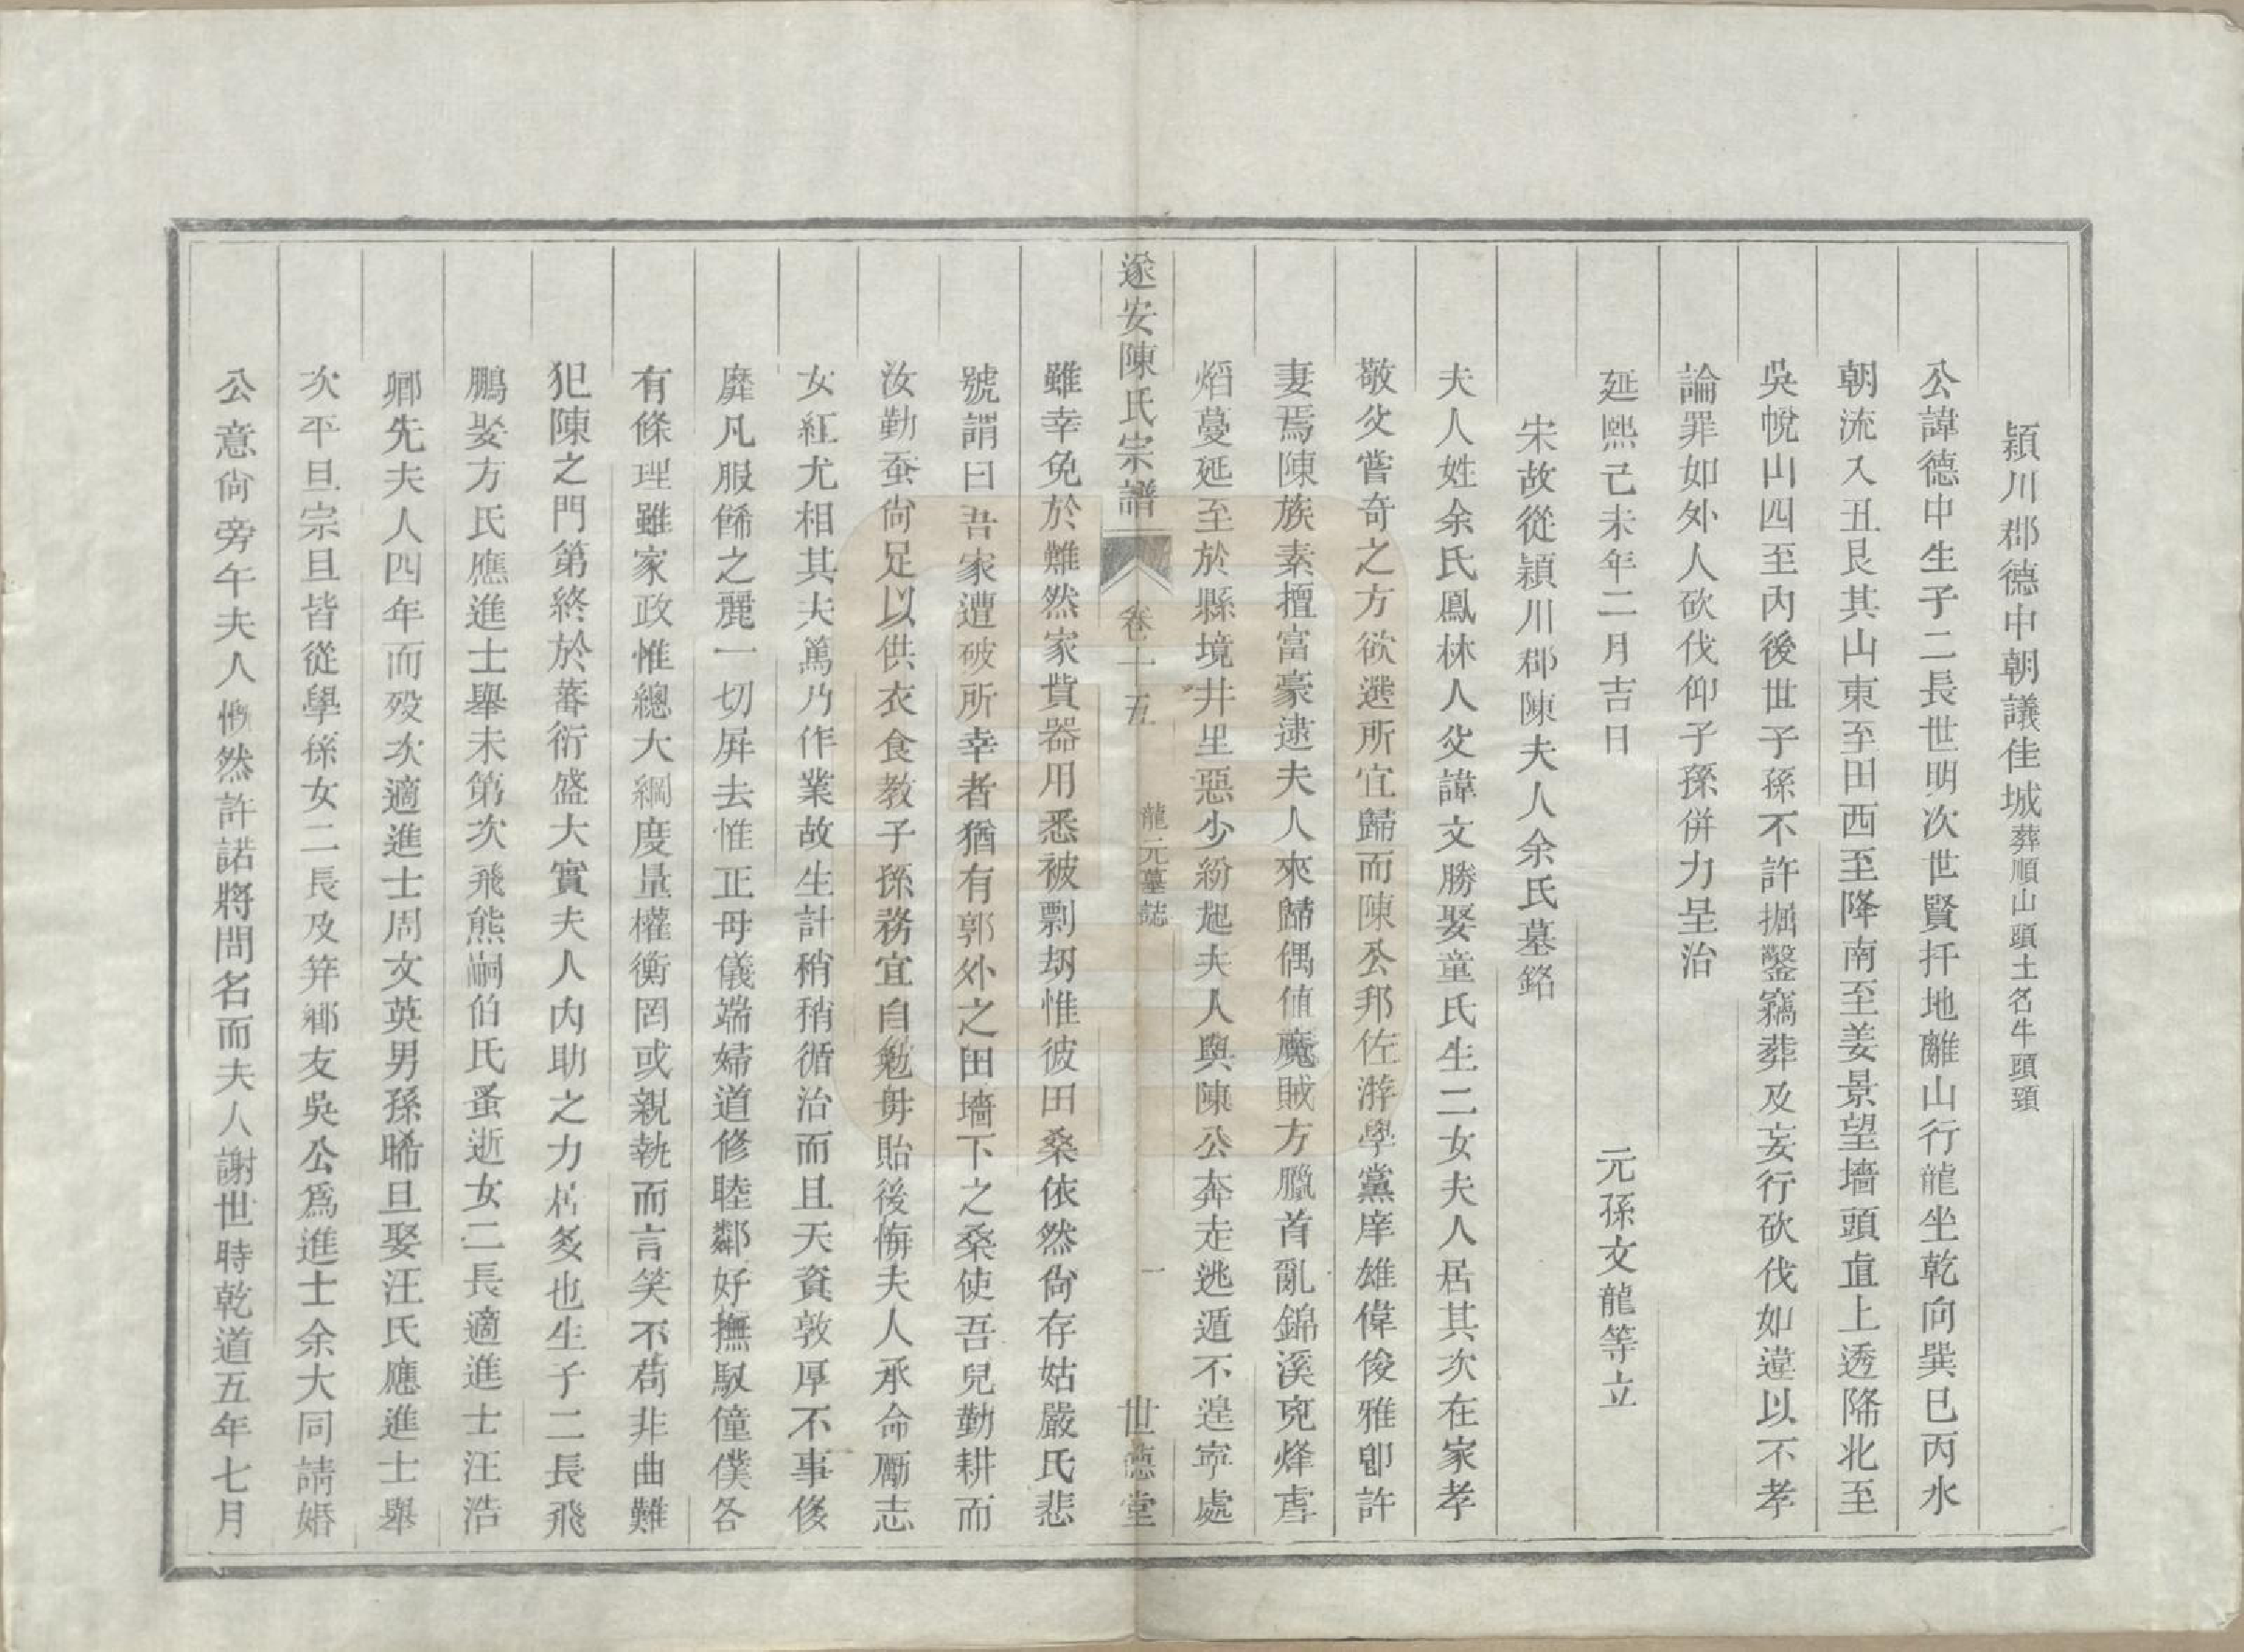 頴川郡德中朝議佳城葬順山頭土名牛頭頸
公諱德中生子二長世明次世賢扦地離山行龍坐乾向巽巳丙水
朝流入丑艮其山東至田西至降南至姜景望墻頭直上透降北至
吳悅山四至內後世子孫不許掘鑿竊葬及妄行砍伐如違以不孝
論罪如外人砍伐仰子孫併力呈治
延熙己未年二月吉日　元孫文龍等立
宋故從頴川郡陳夫人余氏墓銘
夫人姓余氏鳳林人父諱文勝娶童氏生二女夫人居其次在家孝
敬父嘗奇之方欲選所宜歸而陳公邦佐游學黨庠雄偉俊雅卽許
妻焉陳族素擅富豪逮夫人來歸偶値魔賊方臘首亂錦溪兇烽虐
焰蔓延至於縣境井里惡少紛起夫人與陳公奔走逃遁不遑寧處
遂安陳氏宗譜　卷十五　龍元墓誌　一　世德堂
雖幸免於難然家貲器用悉被剽刼惟彼田桑依然尙存姑嚴氏悲
號謂曰吾家遭破所幸者猶有郭外之田墻下之桑使吾兒勤耕而
汝勤蚕尙足以供衣食教子孫務宜自勉毋貽後悔夫人承命勵志
女紅尤相其夫篤乃作業故生計稍稍循治而且天資敦厚不事後
靡凡服餙之麗一切屏去惟正母儀端婦道修睦鄰好撫馭僮僕各
有條理雖家政惟總大綱度量權衡罔或親執而言笑不苟非曲難
犯陳之門第終於蕃衍盛大實夫人內助之力居多也生子二長飛
鵬娶方氏應進士舉未第次飛熊嗣伯氏蚤逝女二長適進士汪浩
卿先夫人四年而殁次適進士周文英男孫晞旦娶汪氏應進士舉
次平旦宗旦皆從學孫女二長及筓鄉友吳公爲進士余大同請婚
公意尙旁午夫人慨然許諾將問名而夫人謝世時乾道五年七月